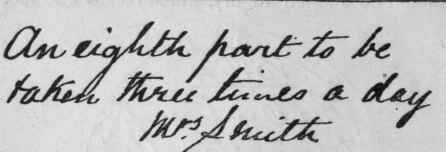 An eighth part to be
taken three times a day
Mrs. Smith